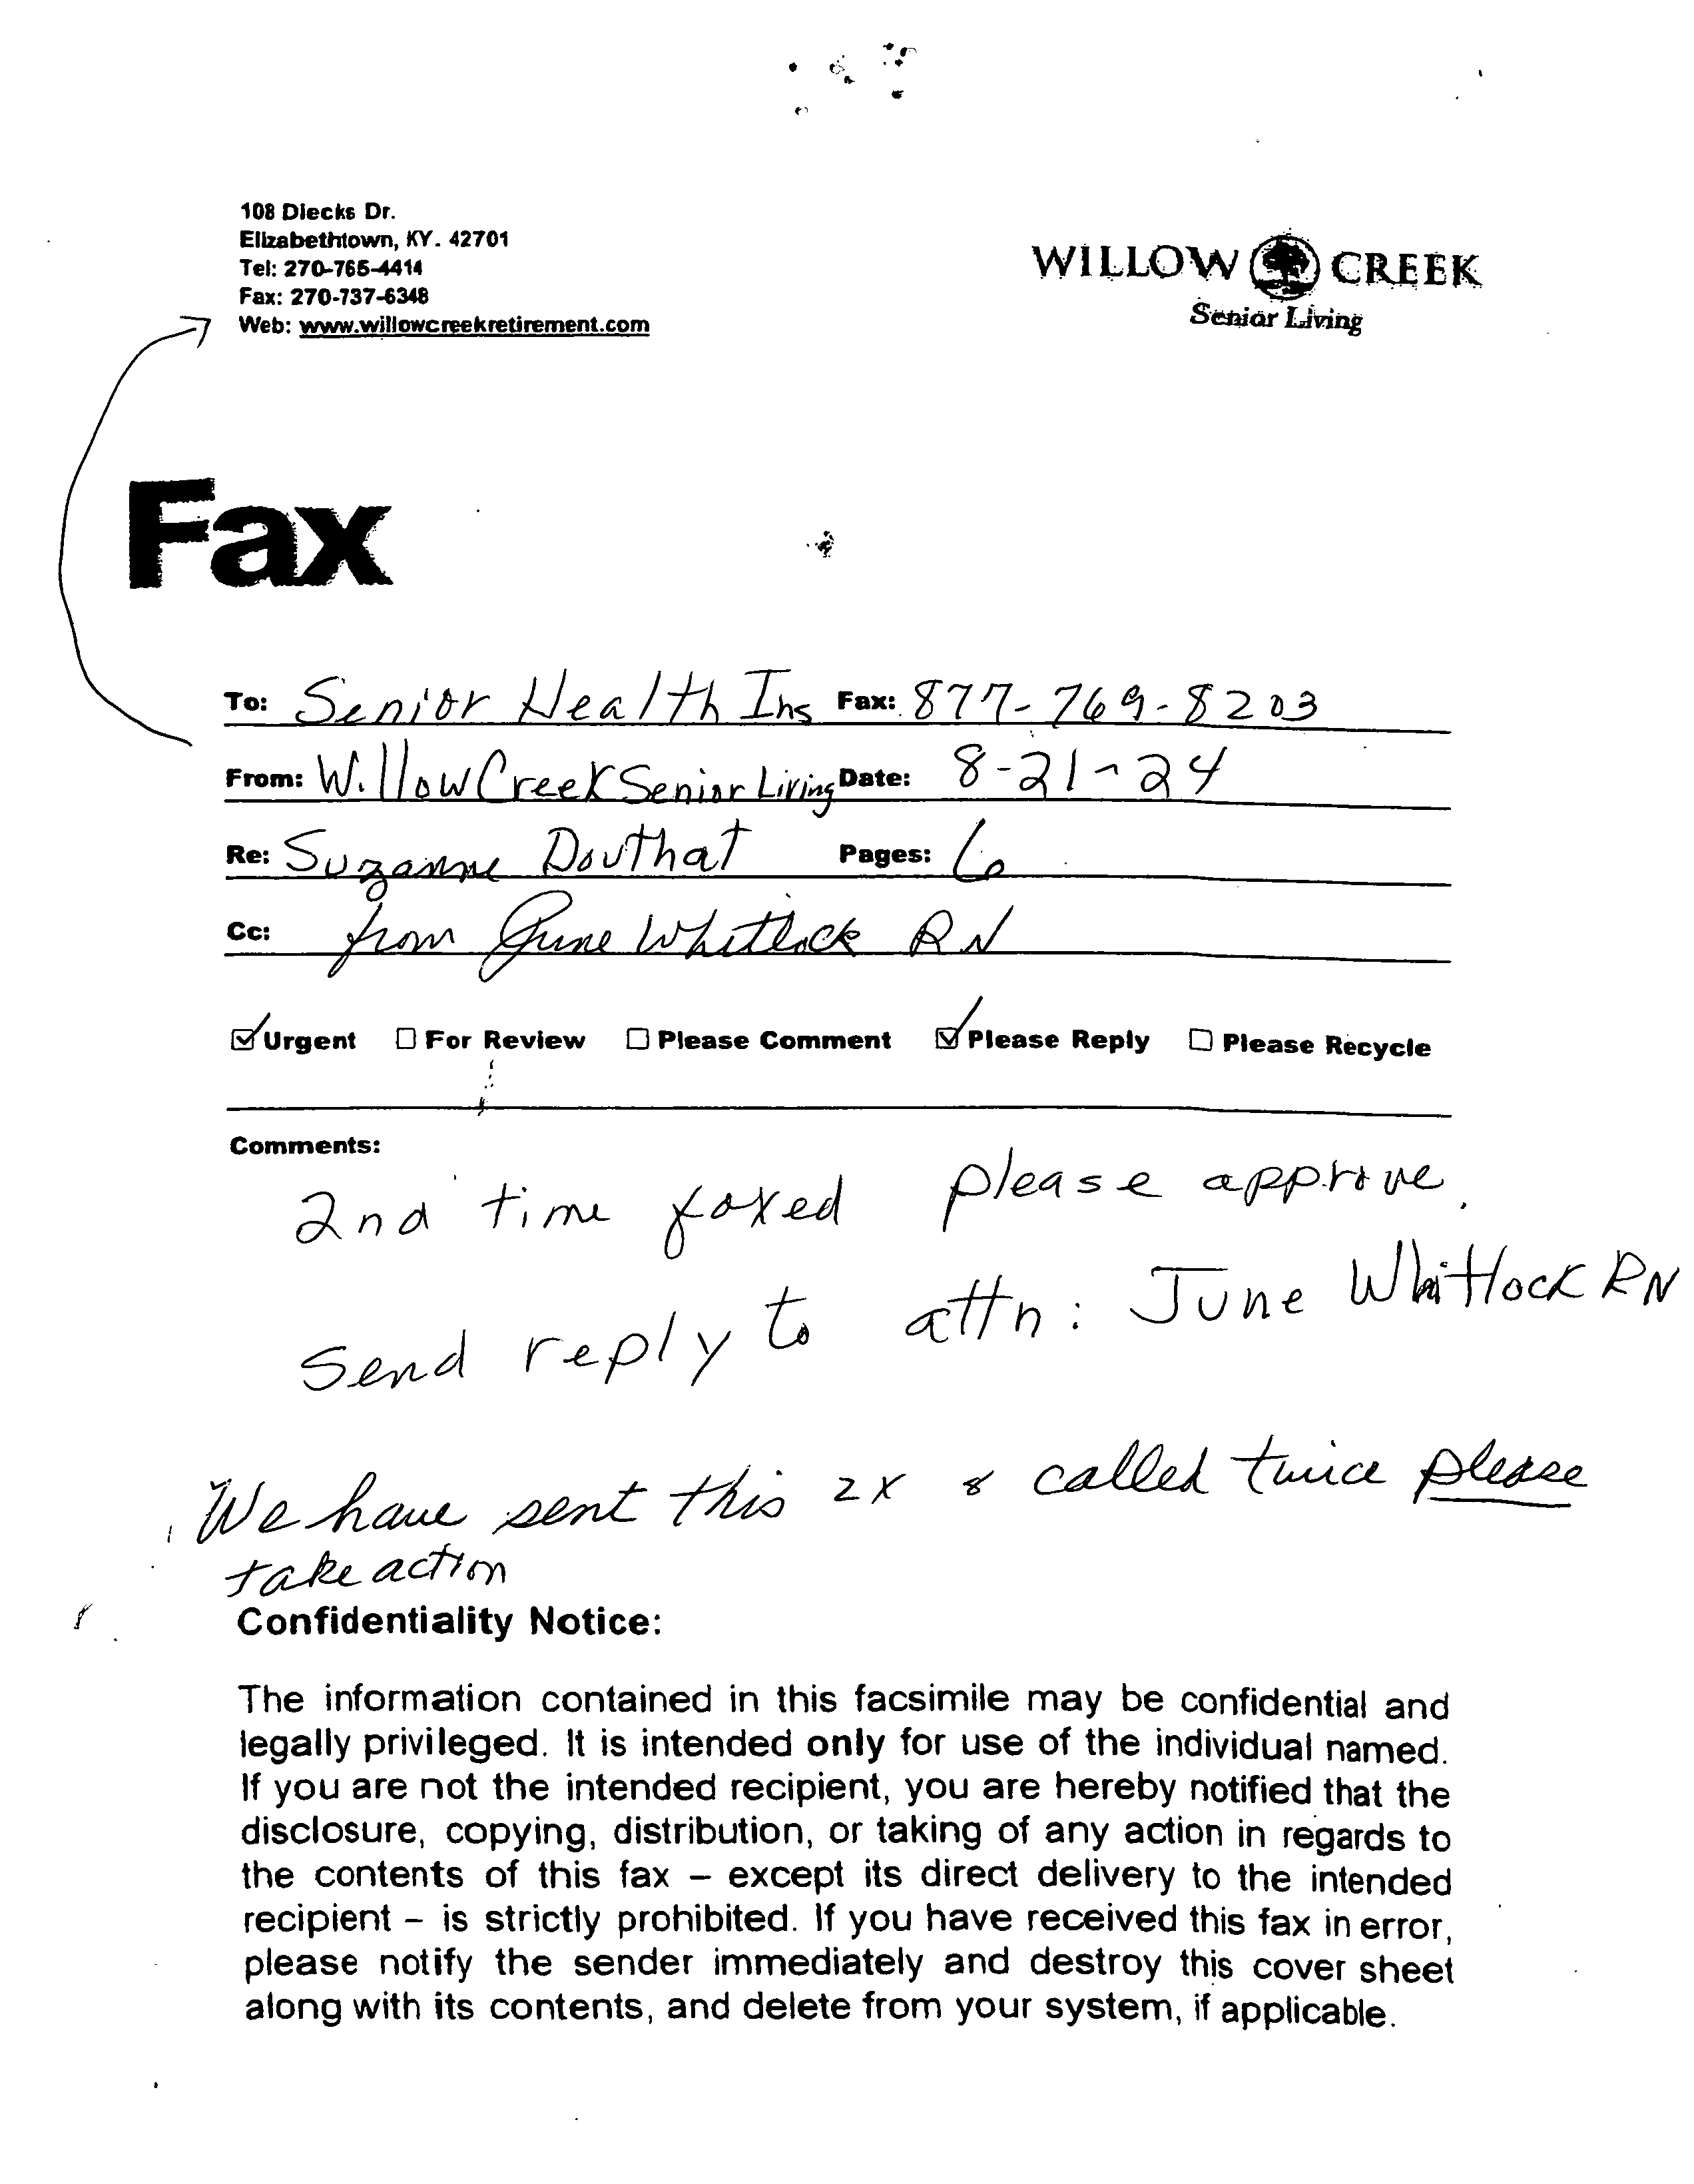 108 Diecks Dr.
Elizabethtown, KY. 42701
Tel: 270-765-4414
Fax: 270-737-6348
Web: www.willowcreekretirement.com
WILLOW CREEK
Senior Living
Fax
To: Senior Health Ins Fax: 877-769-8203
From: Willow Creek Senior Living Date: 8-21-24
Re: Suzanne Douthat Pages: 6
Cc: from June Whitlock RN
☑ Urgent ☐ For Review ☐ Please Comment ☑ Please Reply ☐ Please Recycle
Comments:
2nd time faxed please approve.
Send reply to attn: June Whitlock RN
We have sent this 2x & called twice please
take action
Confidentiality Notice:
The information contained in this facsimile may be confidential and
legally privileged. It is intended only for use of the individual named.
If you are not the intended recipient, you are hereby notified that the
disclosure, copying, distribution, or taking of any action in regards to
the contents of this fax – except its direct delivery to the intended
recipient – is strictly prohibited. If you have received this fax in error,
please notify the sender immediately and destroy this cover sheet
along with its contents, and delete from your system, if applicable.